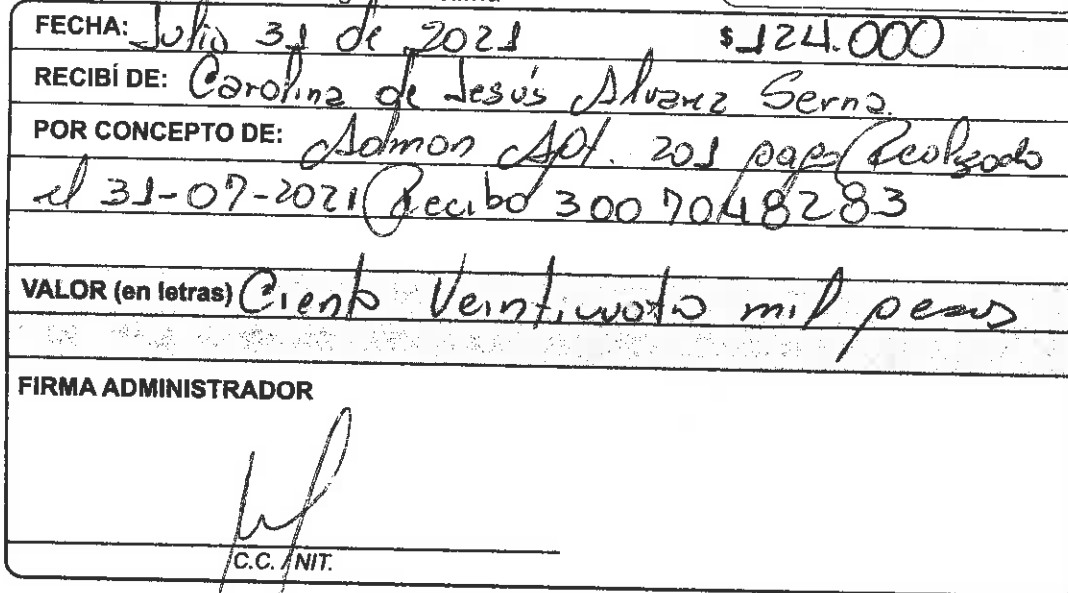 FECHA: Julio 31 de 2021 $124.000
RECIBÍ DE: Carolina de Jesús Alvarez Serna
POR CONCEPTO DE: Admon Apt. 201 pago Realizado
el 31-07-2021 Recibo 3007048283
VALOR (en letras) Ciento Veinticuatro mil pesos
FIRMA ADMINISTRADOR
C.C. / NIT.